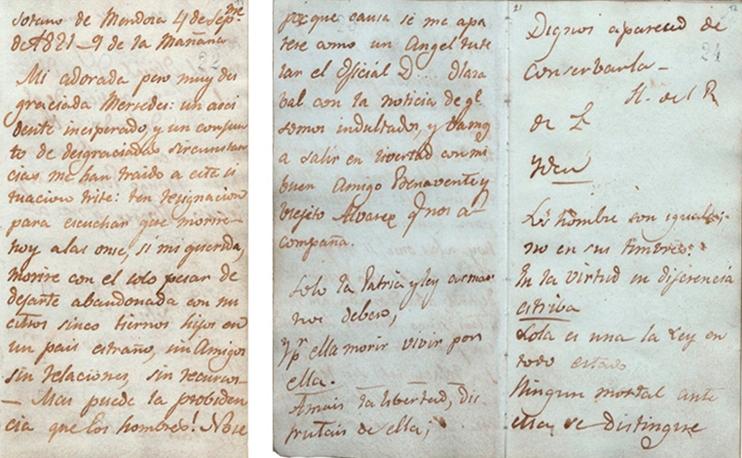 sotano de Mendoza 4 de Sepre
de 1821_9 de la Mañana
22
Mi adorada pero muy des
graciada Mersedes: un acsi
dente inesperado, y un conjun
to de desgraciadas sircunstan
cias me han traido a esta si
tuacion triste: ten resignacion
para escuchar que morire
hoy a las onse, si mi querida,
morire con el solo pesar de
dejarte abandonada con nu
estros sinco tiernos hijos en
un pais estraño, sin Amigos
sin relaciones, sin recursos_
_ Mas puede la probiden
cia que los hombres! No se
que causa se me apa
rese como un Angel tute
lar el Oficial D. Olaza
bal con la noticia de qe
somos indultados, y vamos
a salir en libertad con mi
buen Amigo Benavente y
viejito Alvarez q nos a
compaña.
Solo la Patria y ley amar
nos debeis,
Y pr ella morir vivir por
ella.
Amais la libertad, dis
frutais de ella;
21
Dignos apareced de
Conservarla_
24
de
Yden
Ls hombre son iguales,
no en sus timbres:
En la virtud su diferencia
estriba
Sola es una la Ley en
todo estado
Ningun mortal ante
ella, se distingue